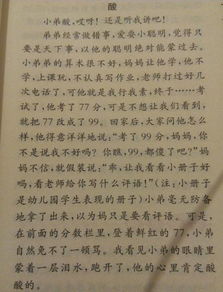 酸
小弟酸,哎呀!还是听我讲吧!
弟弟经常做错事,爱耍小聪明,觉得只
要是天下事,以他的聪明绝对能蒙过去。
小弟弟的算术很不好,妈妈让他学,他不
学,上课玩,不认真写作业,老师打过好几
次电话了,可他就是我行我素,终于……考
试了,他考了77分,可是不想让我们看到,
就把77改成了99。回家后,大家问他怎么
样,他得意洋洋地说:“考了99分,妈妈,你
不是说我不好吗?你瞧,99,都傻了吧?”妈
妈不信,就假装说:“率,让我看看小册子好
吗,看老师给你写什么评语!”(注:小册子
是幼儿园学生表现的册子)小弟毫无防备
地拿了出来,以为妈只是要看评语。可是,
在前面的分数栏里,登着鲜红的77,小弟
自然免不了一顿骂。我看见小弟的眼睛里
蒙着一层泪水,跑开了,他的心里肯定酸
酸的。